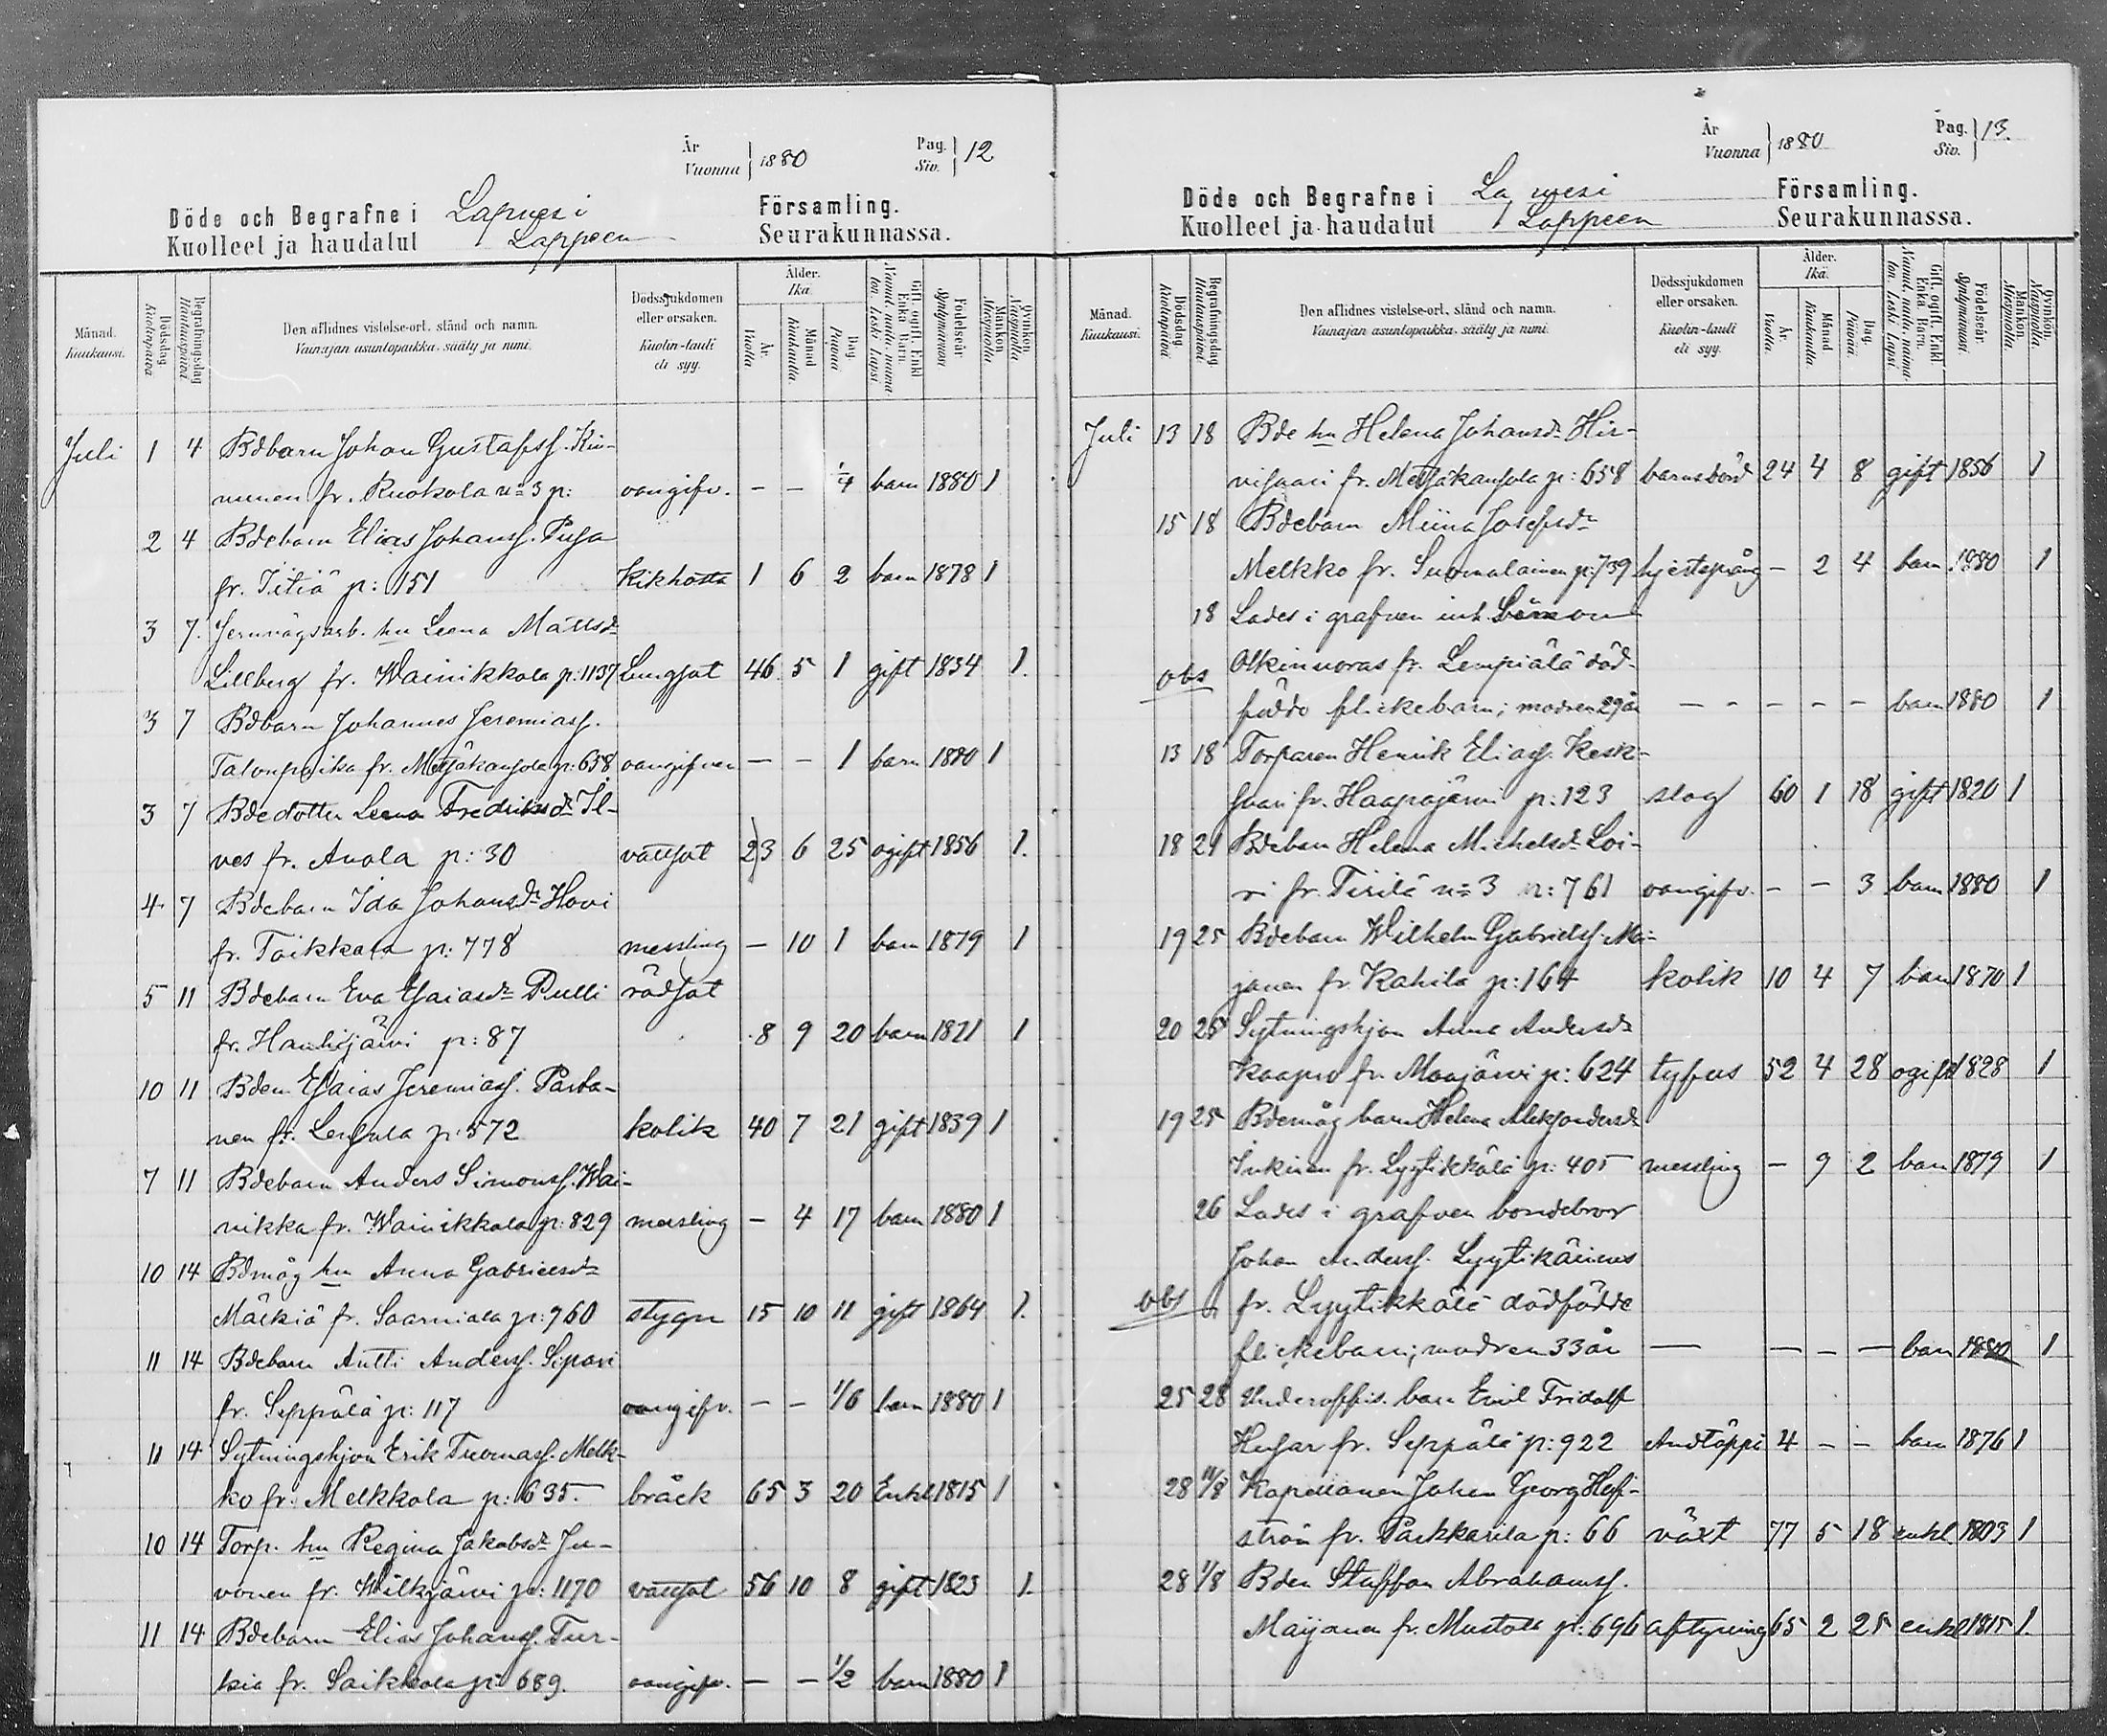 År
Vuonna } 1880
Pag.
Siv. } 12
Döde och Begrafne i Lapvesi Församling.
Kuolleet ja haudatut Lappeen Seurakunnassa.
Månad. Kuukausi.
Dödsdag. Kuolinpäivä
Begrafningsdag Hautauspäivä
Den aflidnes vistelse-ort, stånd och namn.
Vainajan asuntopaikka, sääty ja nimi.
Dödssjukdomen eller orsaken.
Kuolin-tauti eli syy.
Ålder. Ikä.
År. Vuotta.
Månad Kuukautta.
Dag. Päivää
Gift, ogift, Enkl. Enka Barn.
Nainut, naima- ton, Leski Lapsi
Födelseår. Syntymävuosi
Mankön. Miespuolia.
Qvinkön. Naispuolia.
Juli 1 4 Bdbarn Johan Gustafss. Kin-
nunen fr. Ruokola n:o 3 p: oangifv. — — 1/4 barn 1880 1
2 4 Bdebarn Elias Johanss. Pusa
fr. Iitiä p: 151 Kikhosta 1 6 2 barn 1878 1
3 7. Jernvägsarb. hu Leena Mattsdr
Lillberg fr. Wainikkala p: 1137 Lungsot 46 5 1 gift 1834 1.
3 7 Bdbarn Johannes Jeremiass.
Talonpoika fr. Metsäkansola p: 658 oangifven — — 1 barn 1880 1
3 7 Bdedotter Leena Fredriksdr Il-
ves fr. Auola p: 30 vattsot 23 6 25 ogift 1856 1.
4 7 Bdebarn Ida Johansdr Hovi
fr. Toikkala p: 778 messling — 10 1 barn 1879 1
5 11 Bdebarn Eva Esaiasdr Pulli rödsot
fr. Hanhijärvi p: 87 8 9 20 barn 1871 1
10 11 Bden Esaias Jeremiass. Parta-
nen fr. p: 572 kolik 40 7 21 gift 1839 1
7 11 Bdebarn Anders Simonss. Wai-
nikka fr. Wainikkala p: 829 messling — 4 17 barn 1880 1
10 14 Bdmåg hu Anna Gabrielsdr
Mäkiä fr. Saarniala p: 760 stygn 15 10 11 gift 1864 1.
11 14 Bdebarn Antti Anderss. Sipari
fr. Seppälä p: 117 oangifv. — — 1/6 barn 1880 1
11 14 Sytningshjon Erik Tuomass. Melk-
ko fr. Melkkola p: 635. bråck 65 3 20 Enkl 1815 1
10 14 Torp. hu Regina Jakobsdr Ju-
vonen fr. Wilkjärvi p: 1170 vattsot 56 10 8 gift 1823 1.
11 14 Bdebarn Elias Johanss. Tur-
kia fr. Saikkola p: 689. oangifv. — — 1/2 barn 1880 1
År
Vuonna } 1880
Pag.
Siv. } 13.
Döde och Begrafne i Lapvesi Församling.
Kuolleet ja haudatut Lappeen Seurakunnassa.
Månad. Kuukausi.
Dödsdag. Kuolinpäivä
Begrafningsdag Hautauspäivä.
Den aflidnes vistelse-ort, stånd och namn.
Vainajan asuntopaikka, sääty ja nimi.
Dödssjukdomen eller orsaken.
Kuolin-tauti eli syy.
Ålder. Ikä.
År. Vuotta.
Månad. Kuukautta.
Dag. Päivää.
Gift, ogift, Enkl. Enka Barn.
Nainut, naima- ton, Leski Lapsi
Födelseår. Syntymävuosi.
Mankön. Miespuolia.
Qvinkön. Naispuolia.
Juli 13 18 Bde hu Helena Johansdr Hir-
visaari fr. Metsäkansola p: 658 barnsbörd 24 4 8 gift 1856 1
15 18 Bdebarn Miina Josefsdr
Melkko fr. Suomalainen p: 739 hjertsprång — 2 4 barn 1880 1
18 Lades i grafven inh. Simon
obs Olkinuoras fr. Lempiälä död-
födde flickebarn; modren 29 år — - — — — barn 1880 1
13 18 Torparen Henrik Eliass. Kesk-
saari fr. Haapajärvi p: 123 slag 60 1 18 gift 1820 1
18 21 Bdebarn Helena Michelsdr Loi-
ri fr. Tirilä n:o 3 p: 761 oangifv. — — 3 barn 1880 1
19 25 Bdebarn Wilhelm Gabrielss. Mai-
janen fr. Kahila p: 164 kolik 10 4 7 barn 1870 1
20 25 Sytningshjon Anna Andersdr
Kaapro fr. Maajärvi p: 624 tyfus 52 4 28 ogift 1828 1
19 25 Bdemåg barn Helena Aleksandersdr
Inkinen fr. Lyytikkälä p: 405 messling — 9 2 barn 1879 1
26 Lades i grafven bondebror
Johan Anderss. Lyytikäinens
obs fr. Lyytikkälä dödfödde
flickebarn; modren 33 år — — — — barn 1880 1
25 28 Underoffis. barn Emil Fridolf
Husar fr. Seppälä p: 922 Andtäppa 4 - - barn 1876 1
28 11/8 Kapellanen Johan Georg
ström fr. Parkkarila p: 66 växt 77 5 18 enkl. 1803 1
28 1/8 Bden Staffan Abrahamss.
Maijanen fr. Mustola p: 696 aftyning 65 2 25 enkl 1815 1.